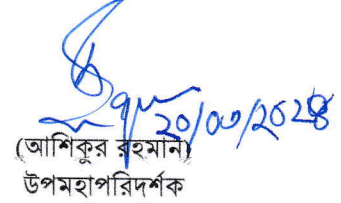 ২০/০৩/২০২৪
(আশিকুর রহমান)
উপমহাপরিদর্শক